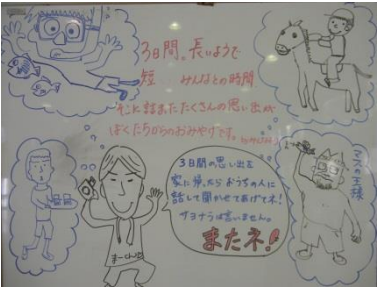 3日間。長いようで
短 みんなとの時間
そこに詰まったたくさんの思い出が
ぼくたちからのおみやげです。
3日間の思い出を
家に帰ったら おうちの人に
話して聞かせてあげてネ!
サヨナラは言いません。
またネ!
マスの王様
まーくん